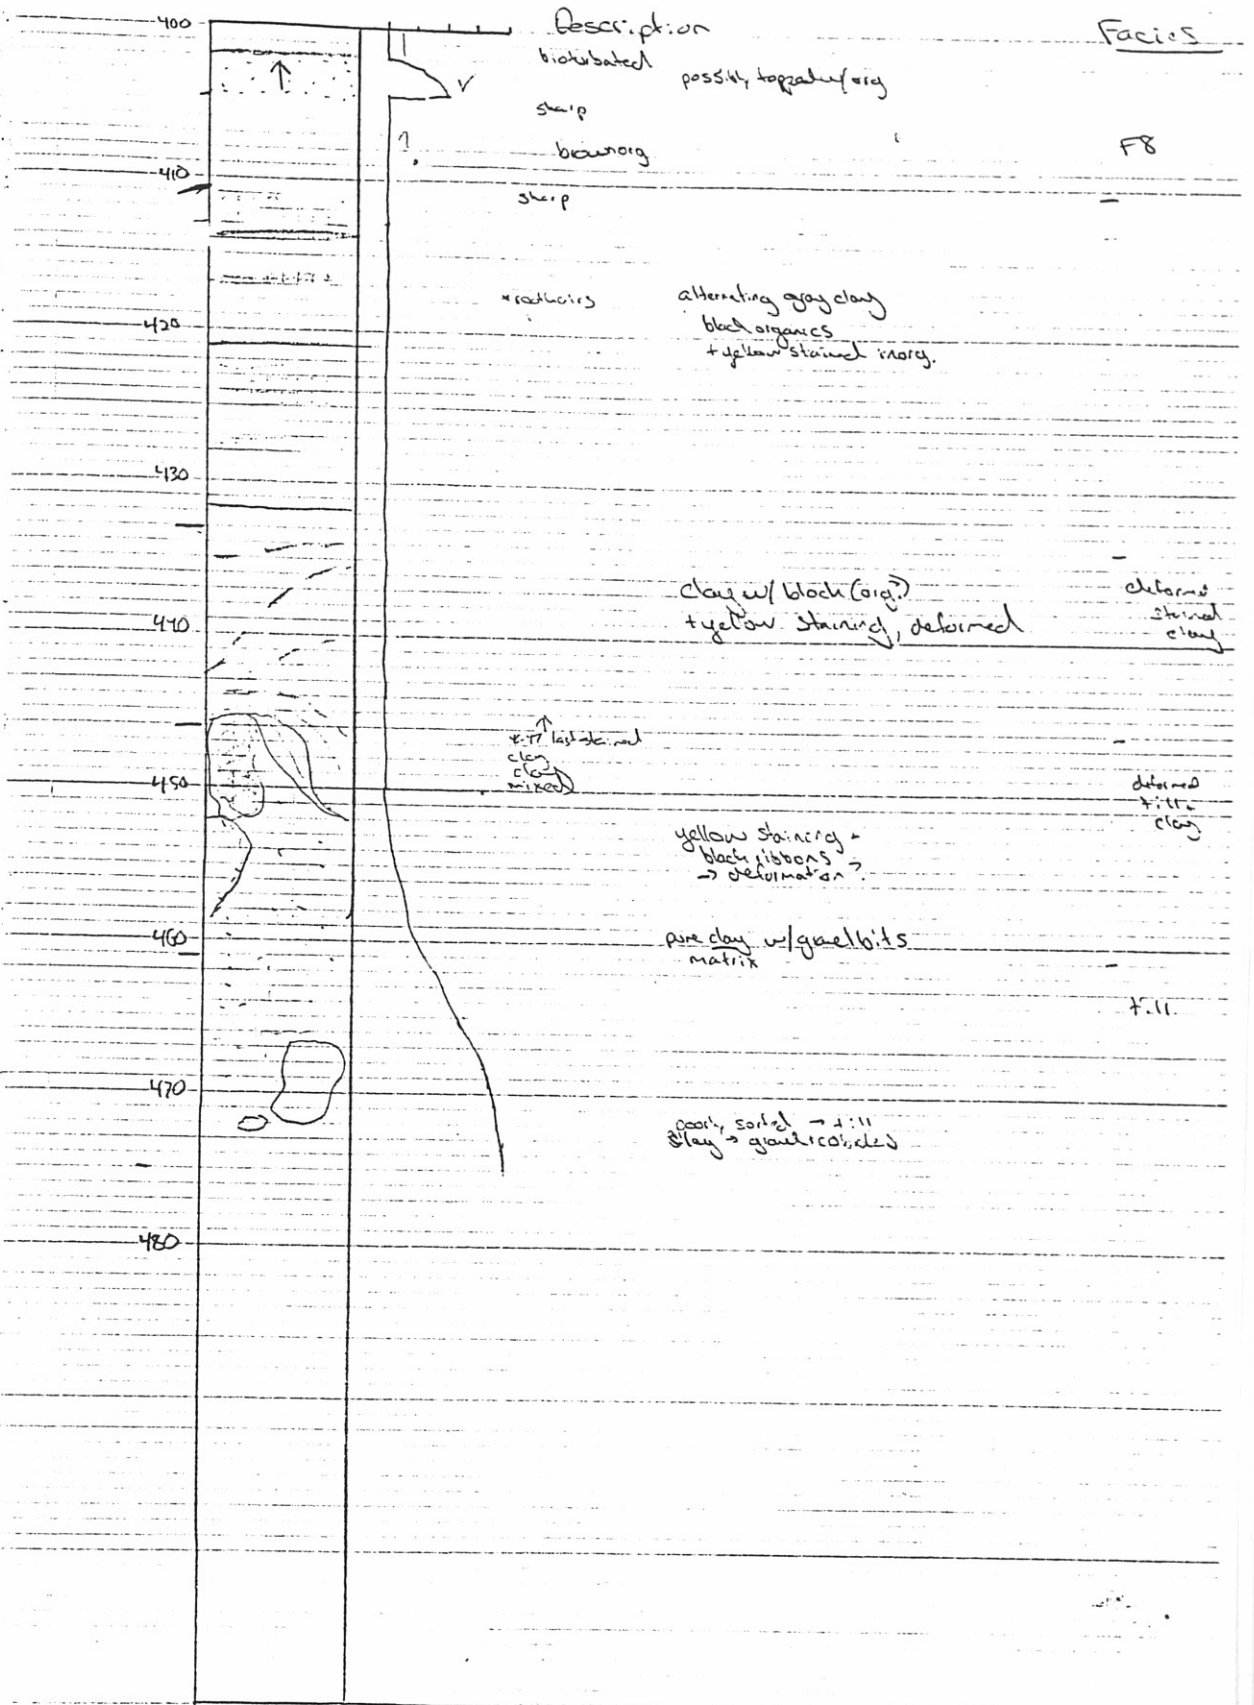 400
Description
Facies
bioturbated
possibly
sharp
?
brown org
F8
410
sharp
alternating gray clay
black organics
+ yellow stained inorg.
420
430
clay w/ black (org?)
+ yellow staining, deformed
deformed
stained
clay
440
↑
last stained
clay
clay
mixed
450
deformed
till +
clay
yellow staining +
black ribbons
→ deformation?
460
pure clay w/ gravel bits
matrix
till
470
poorly sorted → till
clay → gravel + cobbles
480